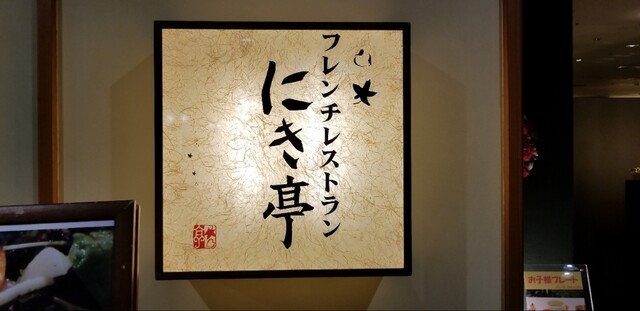 フレンチレストラン
にき亭
お子様プレート